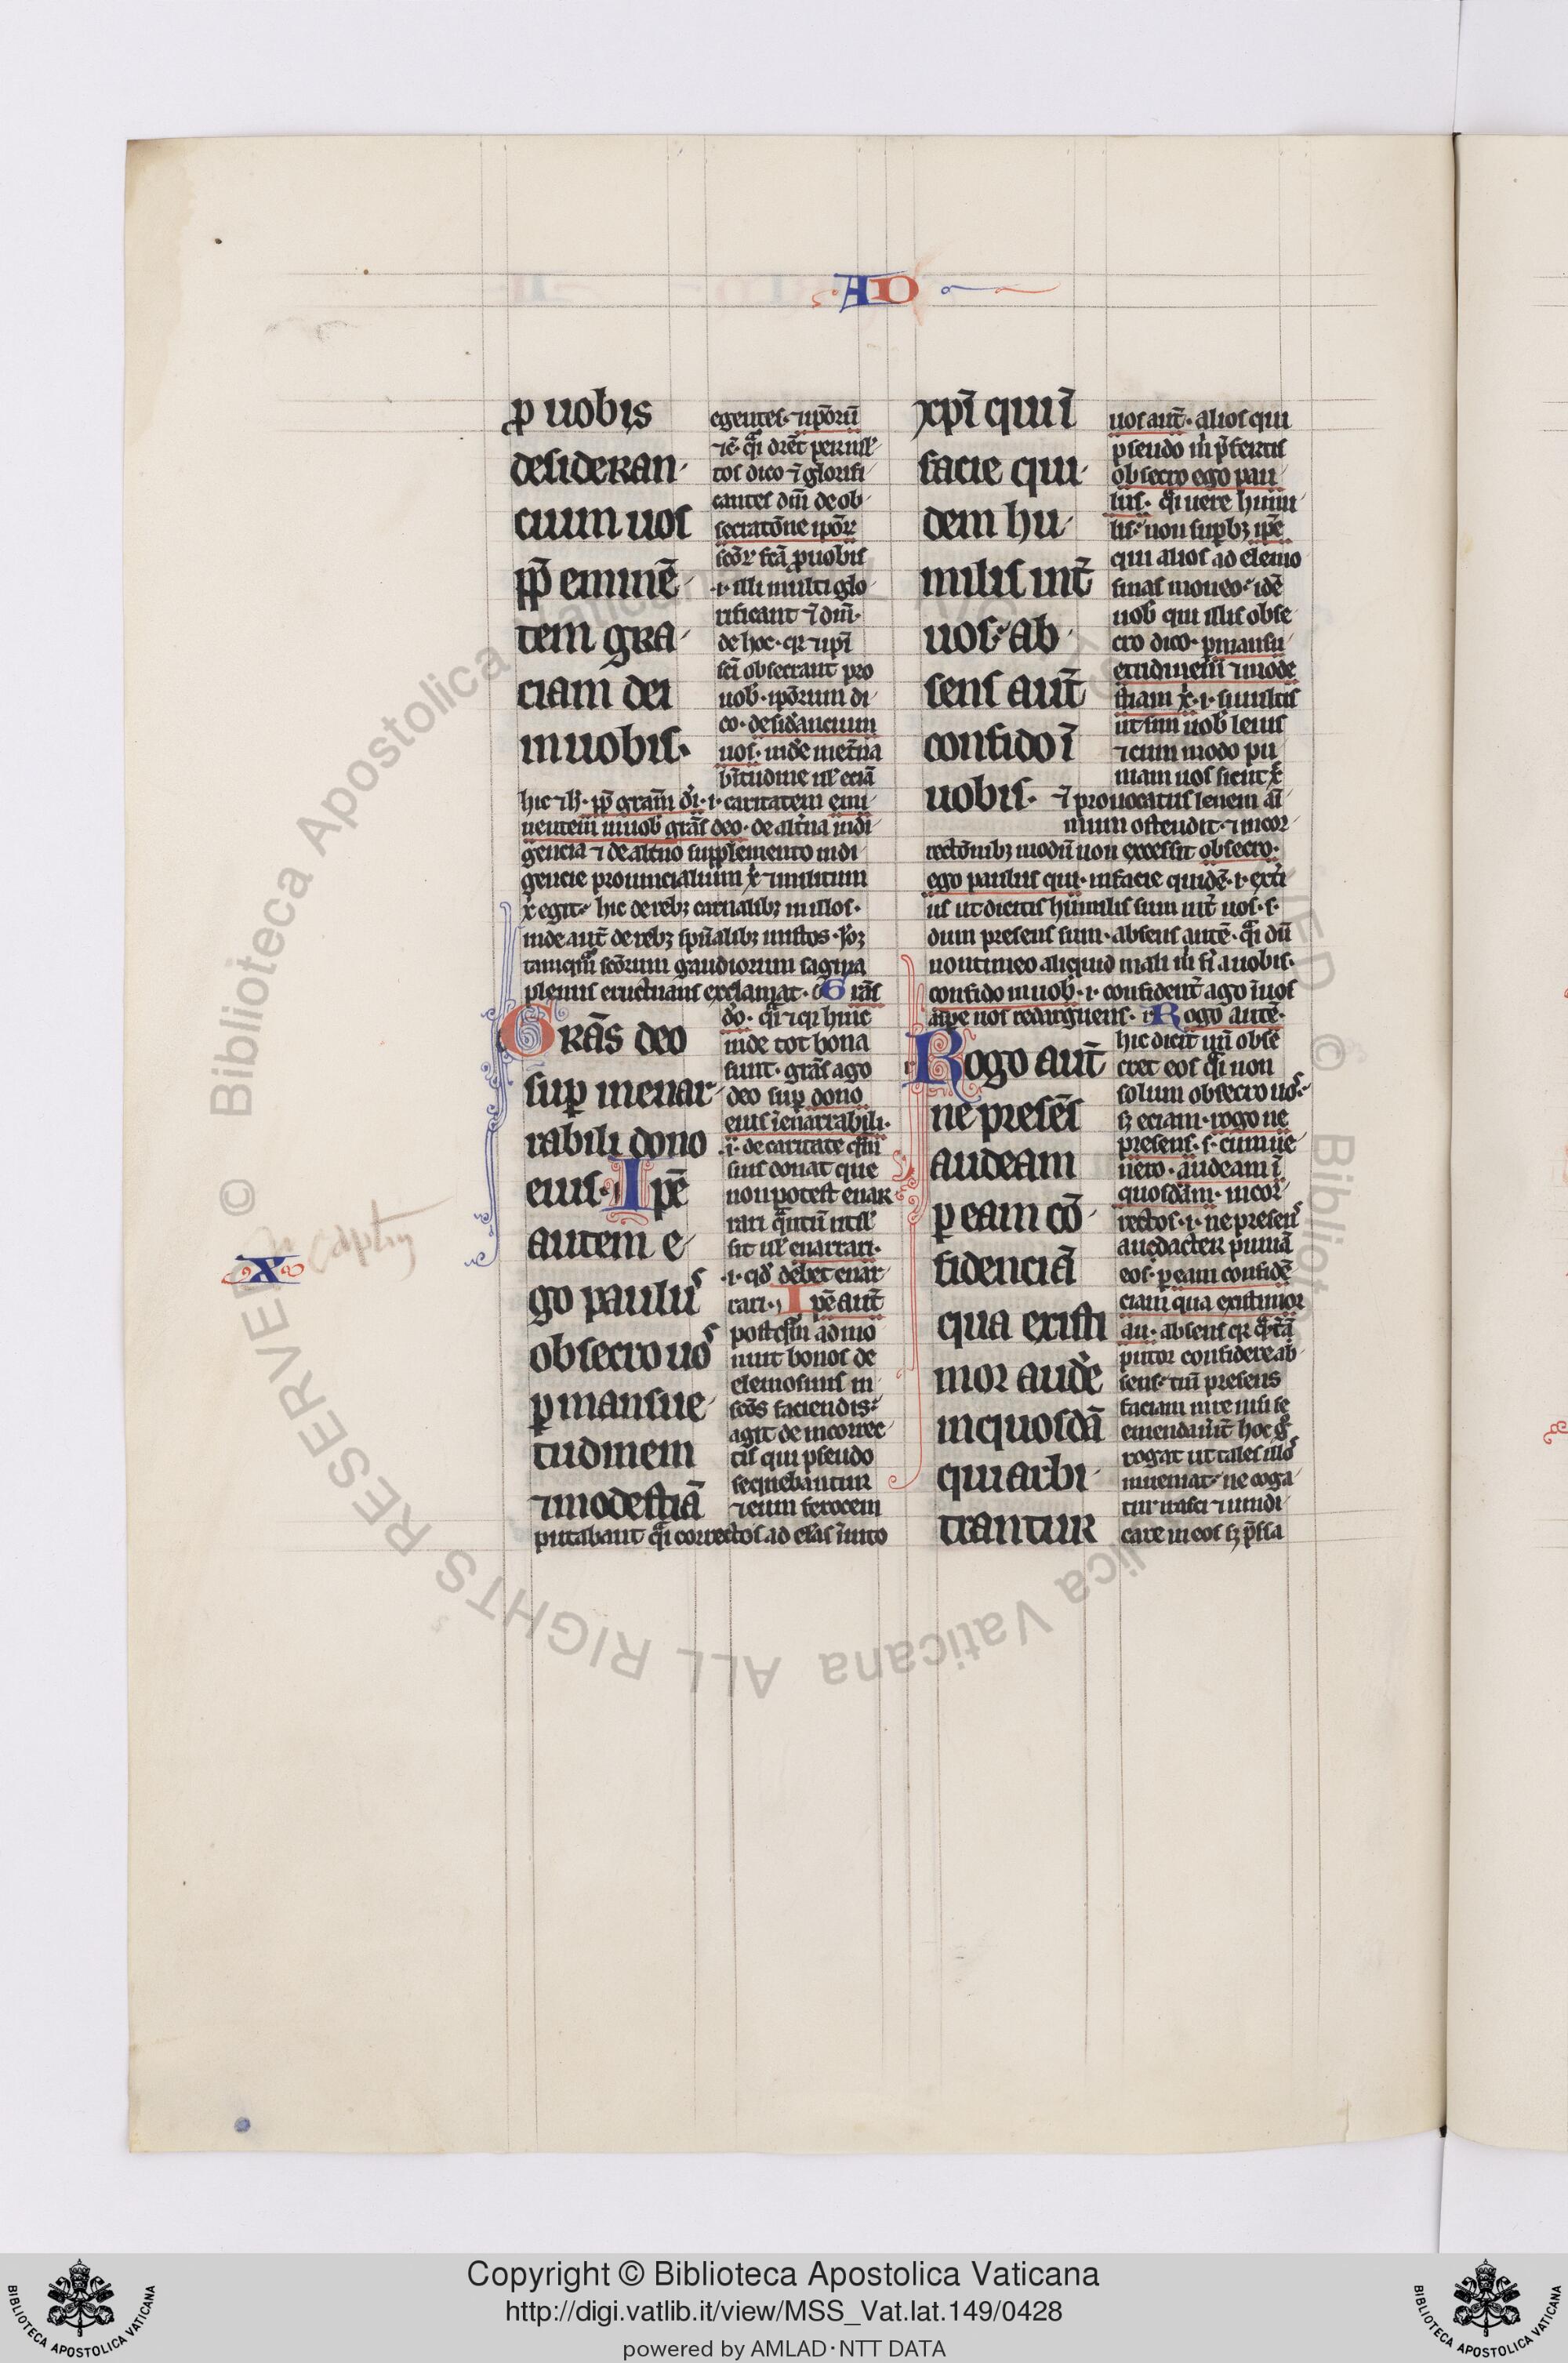 AD
ꝑ uobis
desideran
cium uos
ꝓp̄ eminē
tem gra
ciam dei
in uobis.
egentes. ⁊ ip̄oꝝ
tos dico ⁊ glorifi
cantes dn̄m de ob
secratōne ip̄oꝝ
scōꝝ fc̄a ꝓ uobis
.i. illi multi glo
rificant ⁊ dn̄m.
de hoc. ꝙ ⁊ ip̄i
sc̄i obsecrant pro
uob̄. ip̄orum di
co. desid̓ancium
uos. uid̓e in et̓na
b̄itudine ul̓ eciā
hic ⁊ h̓. ꝓp̄ gram̄ d̓i. .i. caritatem emi
nentem in uob̄ grās deo. de alt̓na indi
gencia ⁊ de alt̓no supplemento indi
gencie prouincialium x̓ ⁊ militum
x̓ egit. hic de rebꝫ carnalibꝫ in illos.
inde aut̄ de rebꝫ sp̄ualibꝫ in istos.
tamq̄m scōrum gaudiorum sagina
plenus eructuans exclamat. Grās
GRās deo
sup̄ inenar
rabili dono
eius. Ip̄e
autem e
go paulus
obsecro uos
ꝑ mansue
tudinem
⁊ modestiā
d̓o. q̄i ⁊ ꝙ huic
inde tot bona
sunt. grās ago
deo sup̄ dono
eius īenarrabili.
.i. de caritate q̄m
suis donat que
non potest enar
rari q̄ntū utił
sit ul̓ enarrari.
.i. q̄d debet enar
rari. Ip̄e aut̄
postq̄m admo
nuit bonos de
elemosinis in
scōs faciendis.
agit de incorrec
tis qui pseudo
sequebantur
⁊ eum ferocem
putabant q̄i correctos ad el̓as īuito
X
xp̄i qui ī
facie qui
dem hu
milis int̄
uos. ab
sens aut̄
confido ī
uobis.
uos aut̄. alios qui
pseudo
obsecro ego pau
lus. q̄i uere humi
lis. non sup̄bꝫ ip̄e
qui alios ad elemo
sinas moneo. idē
uob̄ qui illis obse
cro dico. ꝑ mansu
etudinem ⁊ mode
stiam x̓. .i. similis
ut sim uob̄ lenis
⁊ cum modo pu
niam uos sicut x̓
⁊ prouocatus lenem ai
mum ostendit. ⁊ incor
rectōnibꝫ modū non excessit obsecro.
ego paulus qui. in facie quidē. .i. ext̓i
us ut dicitis humilis sum int̄ uos. s.
dum presens sum. absens autē. q̄i dū
non timeo aliquid mali m̄ fi̓ a uobis.
confido in uob̄. .i. confident̄ ago ī uos
asp̄e uos redarguens. Rogo autē.
Rogo aut̄
ne presēs
audeam
ꝑ eam cō
fidenciā
qua existi
mor aud̓e
in quosdā
qui arbi
trantur
hic dicit ūn obse
cret eos q̄i non
solum obsecro uos.
sꝫ eciam. rogo ne
presens. s. cum ue
nero. audeam ī
quosdam. incor
rectos. .i. ne presens
audacter puniā
eos. ꝑ eam confidē
ciam qua existimor
au. absens
putor confidere ab
sens. cū presens
faciam
emendau̓it̄ hoc g̊
rogat ut tales illos
inueniat. ne coga
tur irasci ⁊ uindi
care in eos sꝫ
© Biblioteca Apostolica Vaticana ALL RIGHTS RESERVED
Copyright © Biblioteca Apostolica Vaticana
http://digi.vatlib.it/view/MSS_Vat.lat.149/0428
powered by AMLAD·NTT DATA
BIBLIOTECA APOSTOLICA VATICANA
BIBLIOTECA APOSTOLICA VATICANA